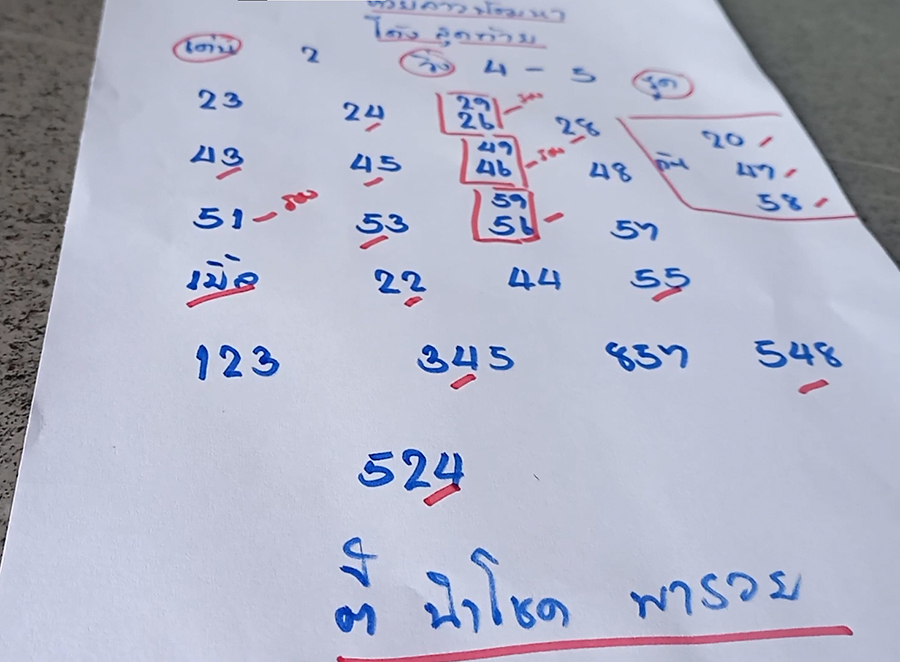 โค้ง สุดท้าย
เด่น 2 วิ่ง 4 - 5 ชุด
23 24 29 28 20
26
43 45 47 48 47
46
51 รอง 53 59 57 58
56
เบิ้ล 22 44 55
123 345 857 548
524
ปี
นำโชค พารวย